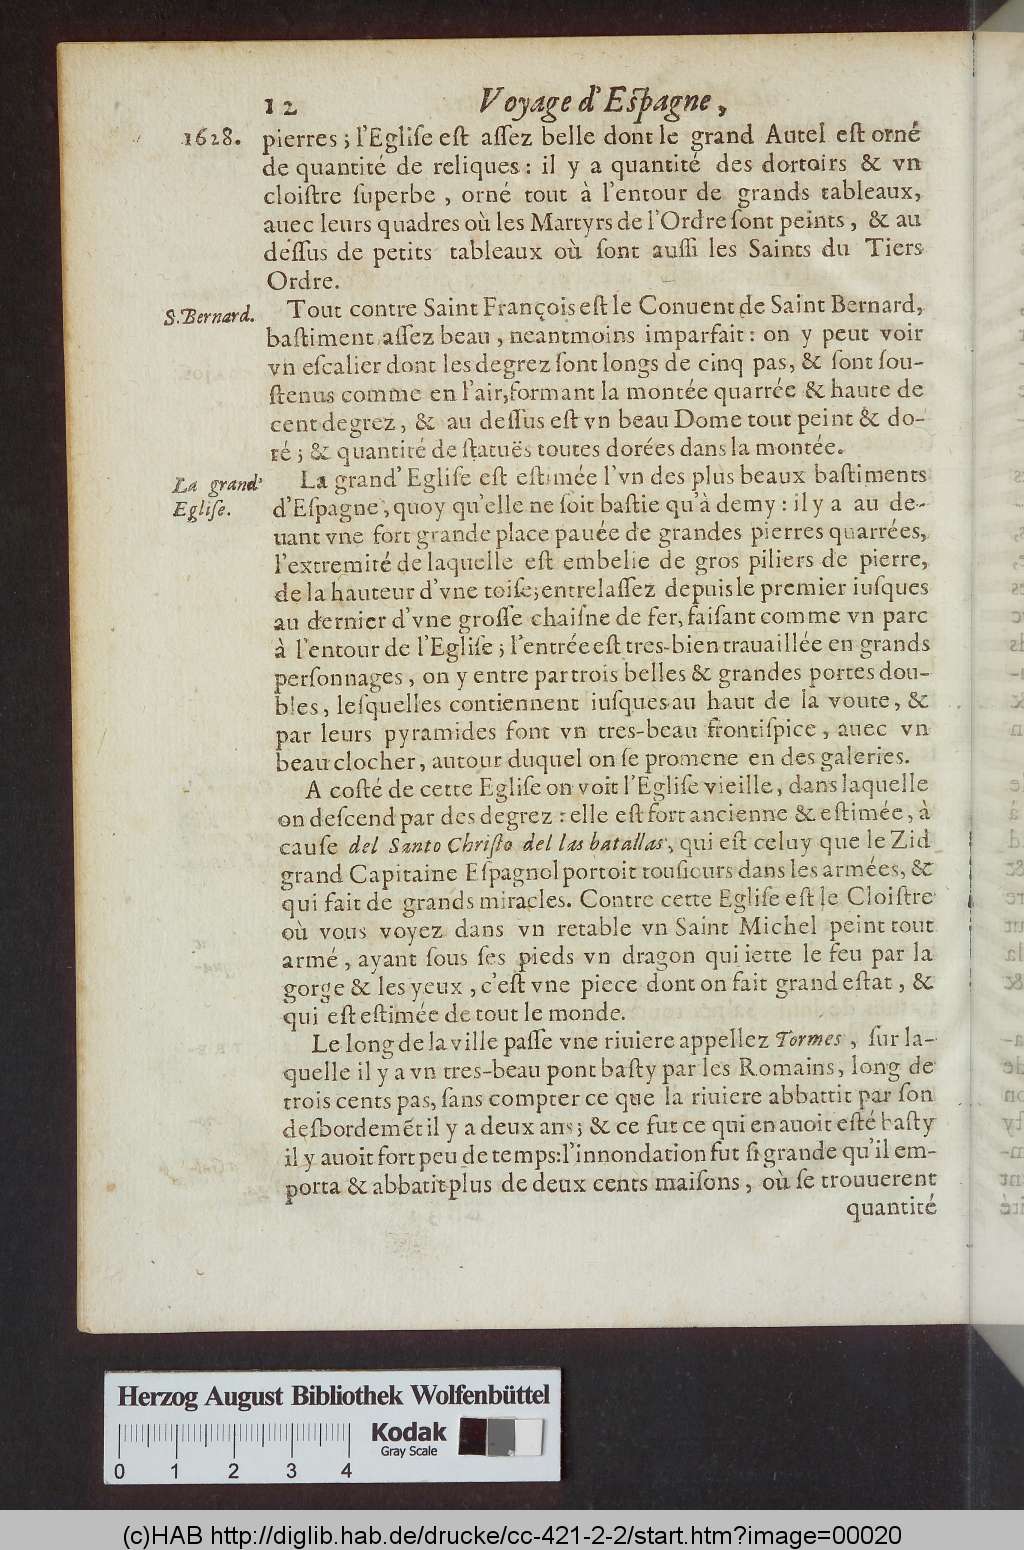 12 Voyage d'Espagne,
1628. pierres ; l'Egliſe eſt aſſez belle dont le grand Autel eſt orné
de quantité de reliques : il y a quantité des dortoirs & vn
cloiſtre ſuperbe , orné tout à l'entour de grands tableaux,
auec leurs quadres où les Martyrs de l'Ordre ſont peints , & au
deſſus de petits tableaux où ſont auſſi les Saints du Tiers
Ordre.
S. Bernard. Tout contre Saint François eſt le Conuent de Saint Bernard,
baſtiment aſſez beau , neantmoins imparfait : on y peut voir
vn eſcalier dont les degrez ſont longs de cinq pas, & ſont ſou-
ſtenus comme en l'air, formant la montée quarrée & haute de
cent degrez, & au deſſus eſt vn beau Dome tout peint & do-
ré ; & quantité de ſtatuës toutes dorées dans la montée.
La grand' La grand' Egliſe eſt eſtimée l'vn des plus beaux baſtiments
Egliſe. d'Eſpagne, quoy qu'elle ne ſoit baſtie qu'à demy : il y a au de-
uant vne fort grande place pauée de grandes pierres quarrées,
l'extremité de laquelle eſt embelie de gros piliers de pierre,
de la hauteur d'vne toiſe, entrelaſſez depuis le premier iuſques
au dernier d'vne groſſe chaiſne de fer, faiſant comme vn parc
à l'entour de l'Egliſe ; l'entrée eſt tres-bien trauaillée en grands
perſonnages , on y entre par trois belles & grandes portes dou-
bles, leſquelles contiennent iuſques au haut de la voute, &
par leurs pyramides font vn tres-beau frontiſpice , auec vn
beau clocher, autour duquel on ſe promene en des galeries.
A coſté de cette Egliſe on voit l'Egliſe vieille, dans laquelle
on deſcend par des degrez : elle eſt fort ancienne & eſtimée, à
cauſe del Santo Chriſto del las batallas, qui eſt celuy que le Zid
grand Capitaine Eſpagnol portoit touſieurs dans les armées, &
qui fait de grands miracles. Contre cette Egliſe eſt le Cloiſtre
où vous voyez dans vn retable vn Saint Michel peint tout
armé , ayant ſous ſes pieds vn dragon qui iette le feu par la
gorge & les yeux , c'eſt vne piece dont on fait grand eſtat , &
qui eſt eſtimée de tout le monde.
Le long de la ville paſſe vne riuiere appellez Tormes , ſur la-
quelle il y a vn tres-beau pont baſty par les Romains, long de
trois cents pas, ſans compter ce que la riuiere abbattit par ſon
deſbordemẽt il y a deux ans ; & ce fut ce qui en auoit eſté baſty
il y auoit fort peu de temps: l'innondation fut ſi grande qu'il em-
porta & abbatit plus de deux cents maiſons , où ſe trouuerent
quantité
Herzog August Bibliothek Wolfenbüttel
Kodak
Gray Scale
0 1 2 3 4
(c)HAB http://diglib.hab.de/drucke/cc-421-2-2/start.htm?image=00020